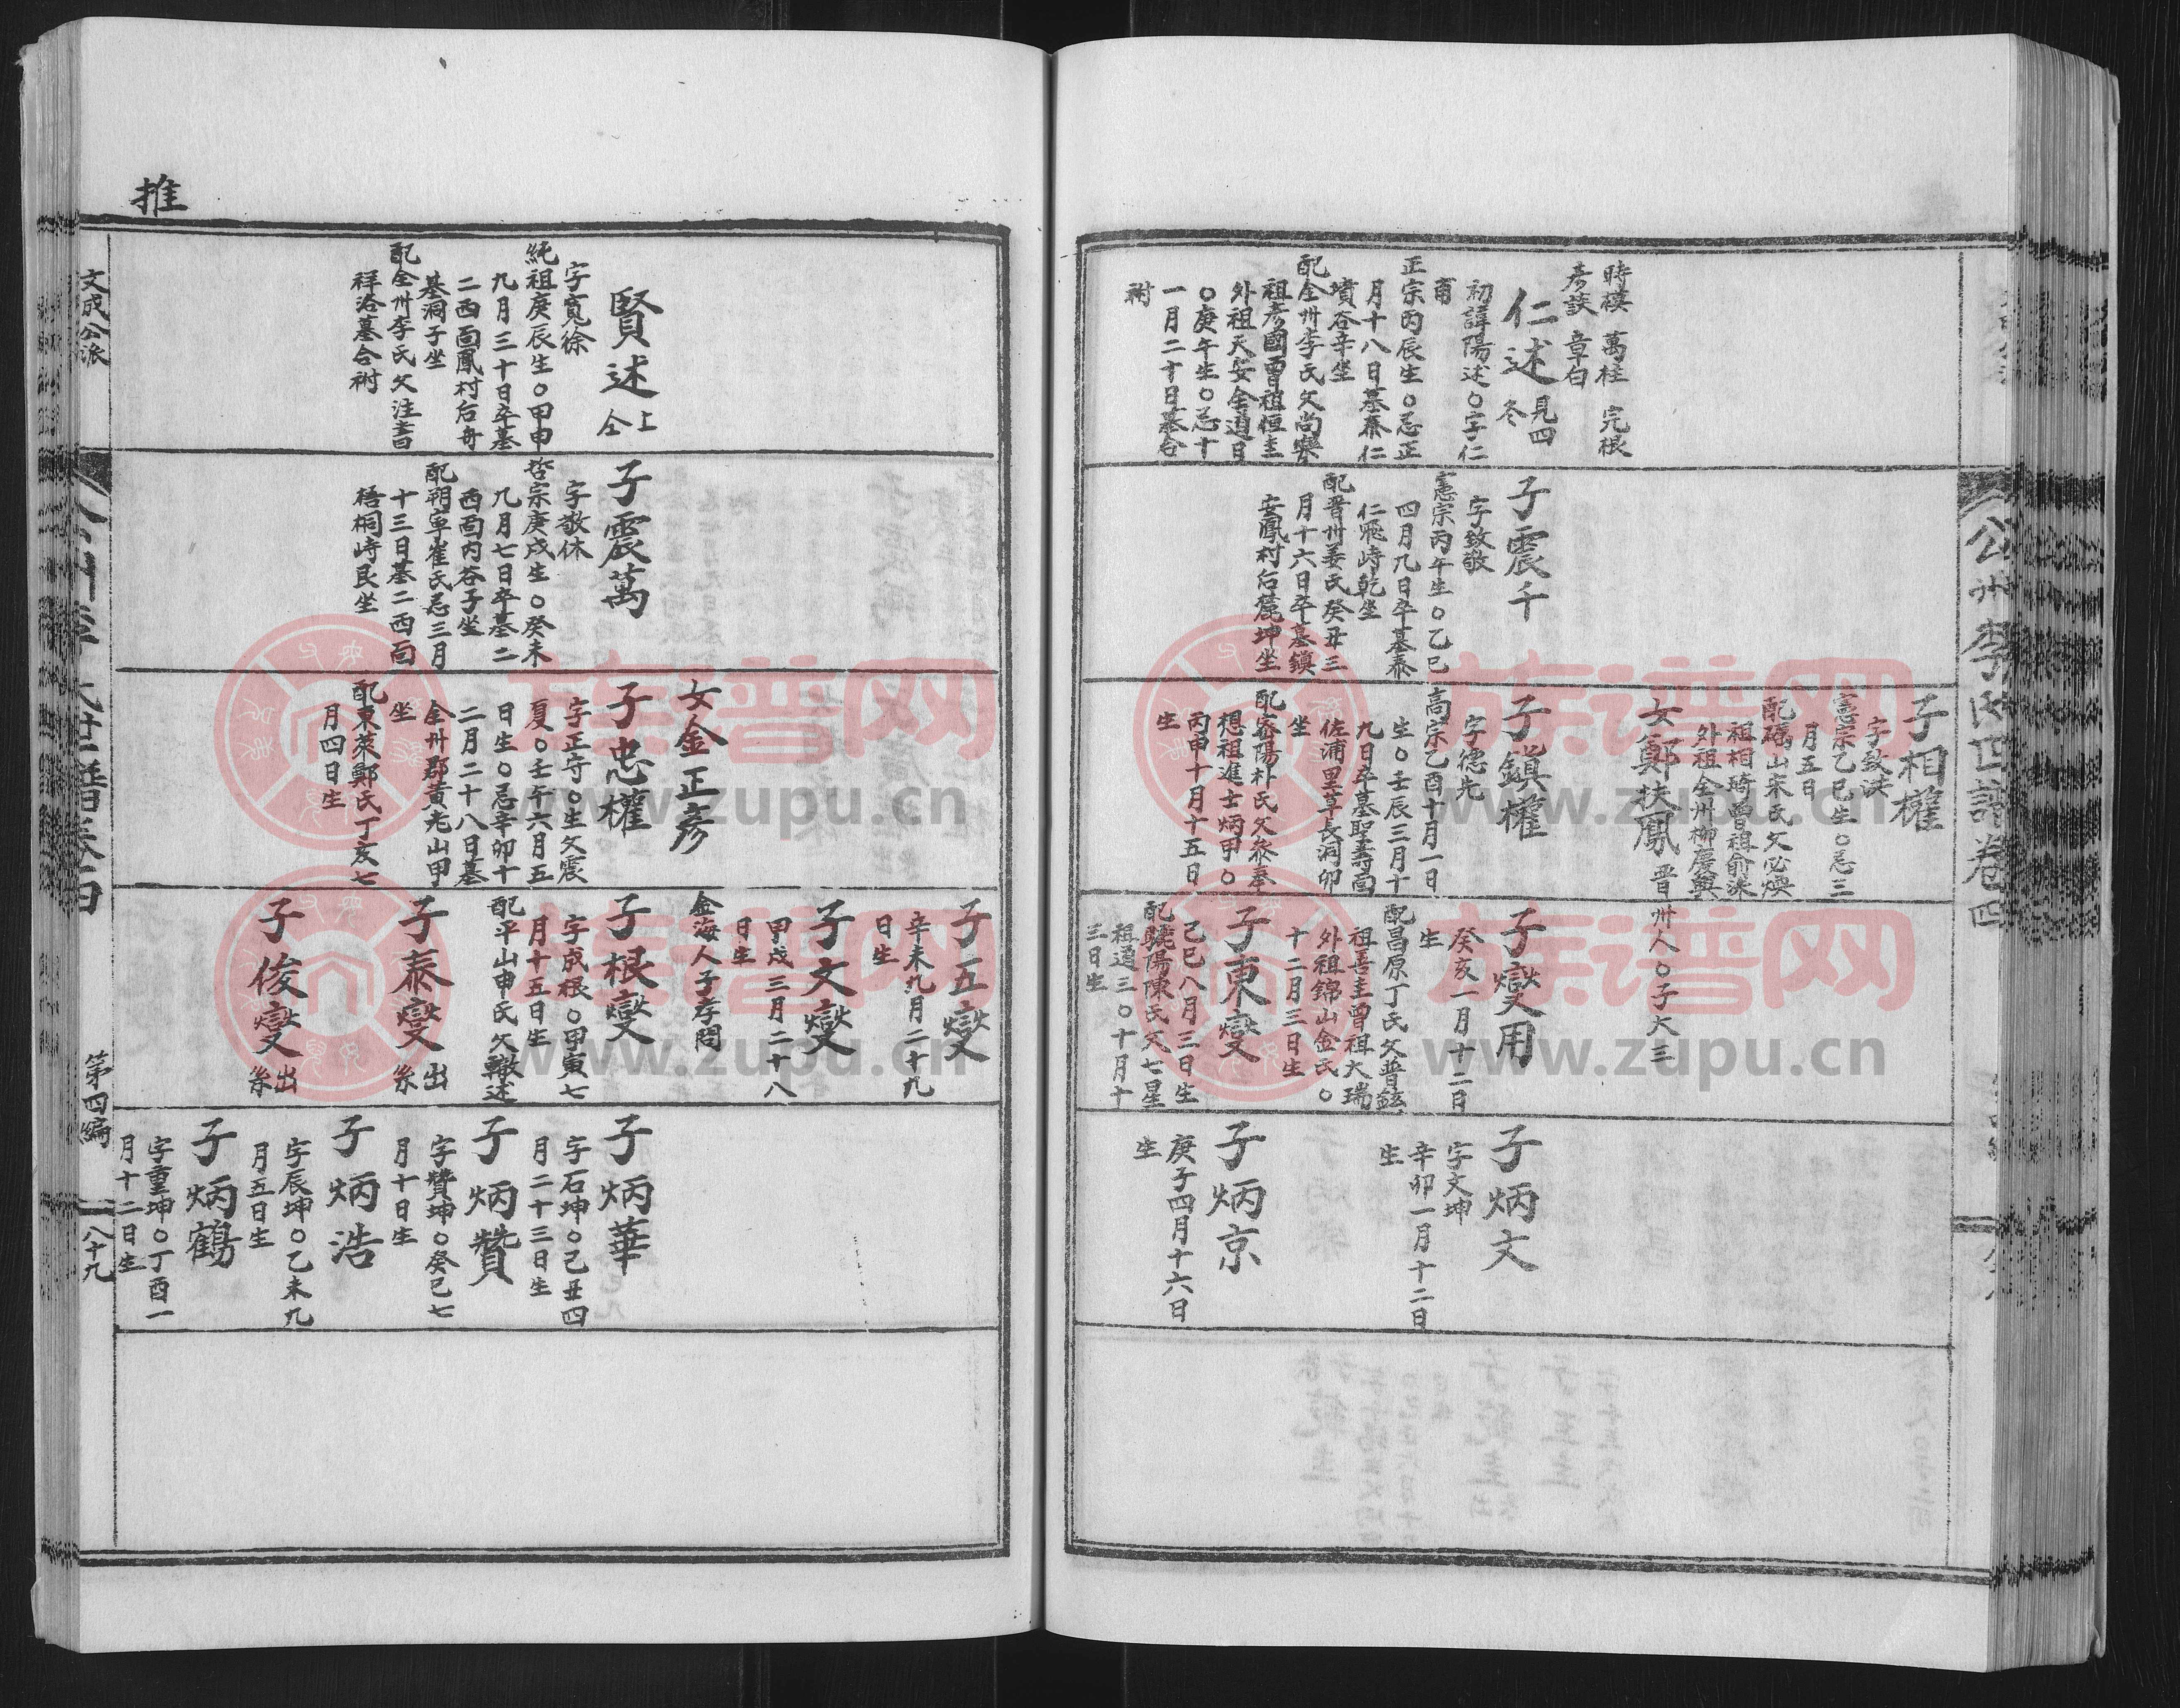 公州李氏世譜卷四
時模 萬柱 完根
彥談 章白
仁述 見四
冬
初諱陽述○字仁
甫
正宗丙辰生○忌正
月十八日墓泰仁
墳谷辛坐
配全州李氏父尚樂
祖彥國曾祖恒圭
外祖天安全道日
○庚午生○忌十
一月二十日墓合
祔
子震千
字致敬
憲宗丙午生○乙巳
四月九日卒墓泰
仁飛峙乾坐
配晋州姜氏癸丑三
月十六日卒墓鎮
安鳳村后麓坤坐
子相權
字致洪
憲宗乙巳生○忌三
月五日
配礪山宋氏父必煥
祖相琦曾祖俞洙
外祖全州柳慶興
女鄭扶鳳 晋
州人○子大三
子鎮權
字德先
高宗乙酉十月一日
生○壬辰三月十
九日卒墓聖壽面
佐浦里草長洞卯
坐
配密陽朴氏父參奉
想祖進士炳甲○
丙申十月十五日
生
子燮用
癸亥一月十二日
生
配昌原丁氏父普鉉
祖喜圭曾祖大瑞
外祖錦山金氏○
十二月三日生
子東燮
己巳八月三日生
配驪陽陳氏父七星
祖道三○十月十
三日生
子炳文
字文坤
辛卯一月十二日
生
子炳京
庚子四月十六日
生
賢述 上
仝
字寬徐
純祖庚辰生○甲申
九月三十日卒墓
二西面鳳村后舟
基洞子坐
配全州李氏父注書
祥洽墓合祔
子震萬
字敬休
哲宗庚戌生○癸未
九月七日卒墓二
西面內谷子坐
配朔寧崔氏忌三月
十三日墓二西面
梧桐峙艮坐
女金正彥
金海人子孝問
子忠權
字正守○生父震
夏○壬午六月五
日生○忌辛卯十
二月二十八日墓
全州郡黃尨山甲
坐
配東萊鄭氏丁亥七
月四日生
子五燮
辛未九月二十九
日生
子文燮
甲戌三月二十八
日生
子根燮
字成根○甲寅七
月十五日生
配平山申氏父轍述
子泰燮 出
系
子俊燮 出
系
子炳華
字石坤○己丑四
月二十三日生
子炳贊
字贊坤○癸巳七
月十日生
子炳浩
字辰坤○乙未九
月五日生
子炳鶴
字重坤○丁酉一
月十二日生
推
文成公派
第四編
八十九
族谱网
www.zupu.cn
族谱网
www.zupu.cn
族谱网
www.zupu.cn
族谱网
www.zupu.cn